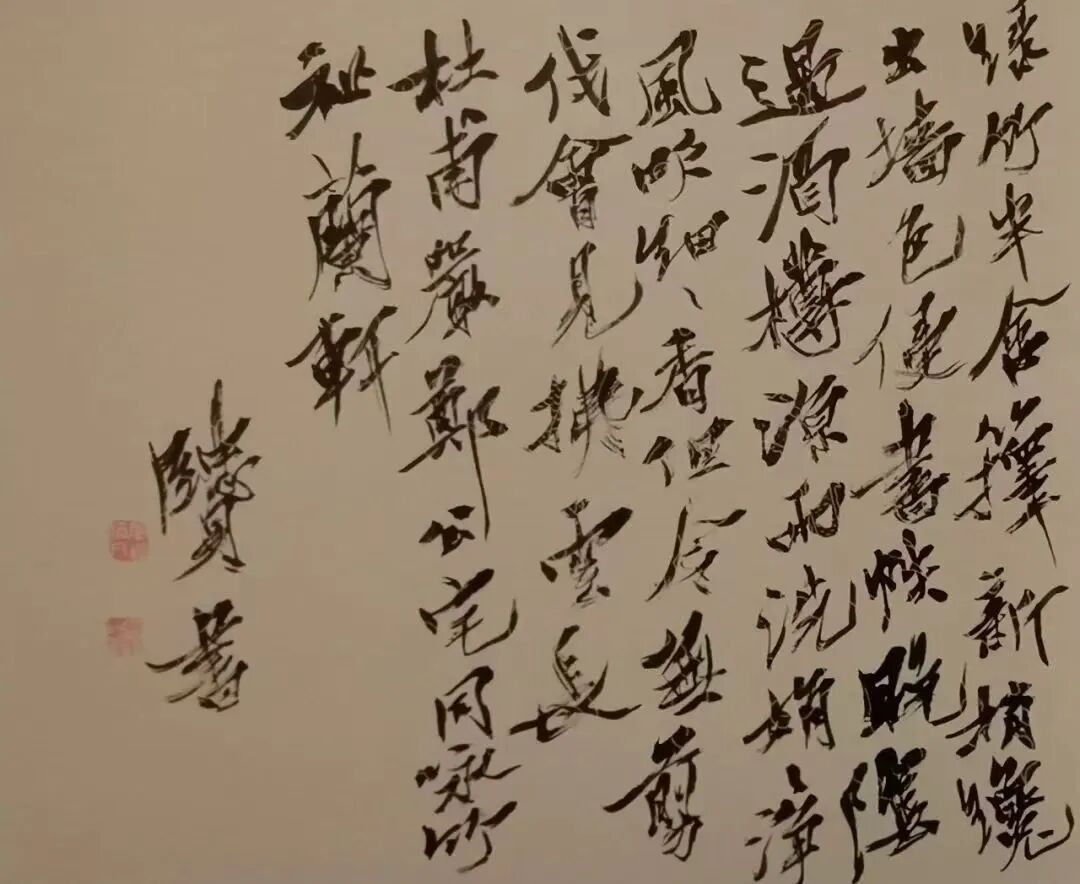 綠竹半含籜新梢纔
出墻色侵書帙晚陰
過酒樽涼雨洗娟〻淨
風吹細〻香但令無剪
伐會見拂雲長
杜甫嚴鄭公宅同詠竹
祉蘭軒
書